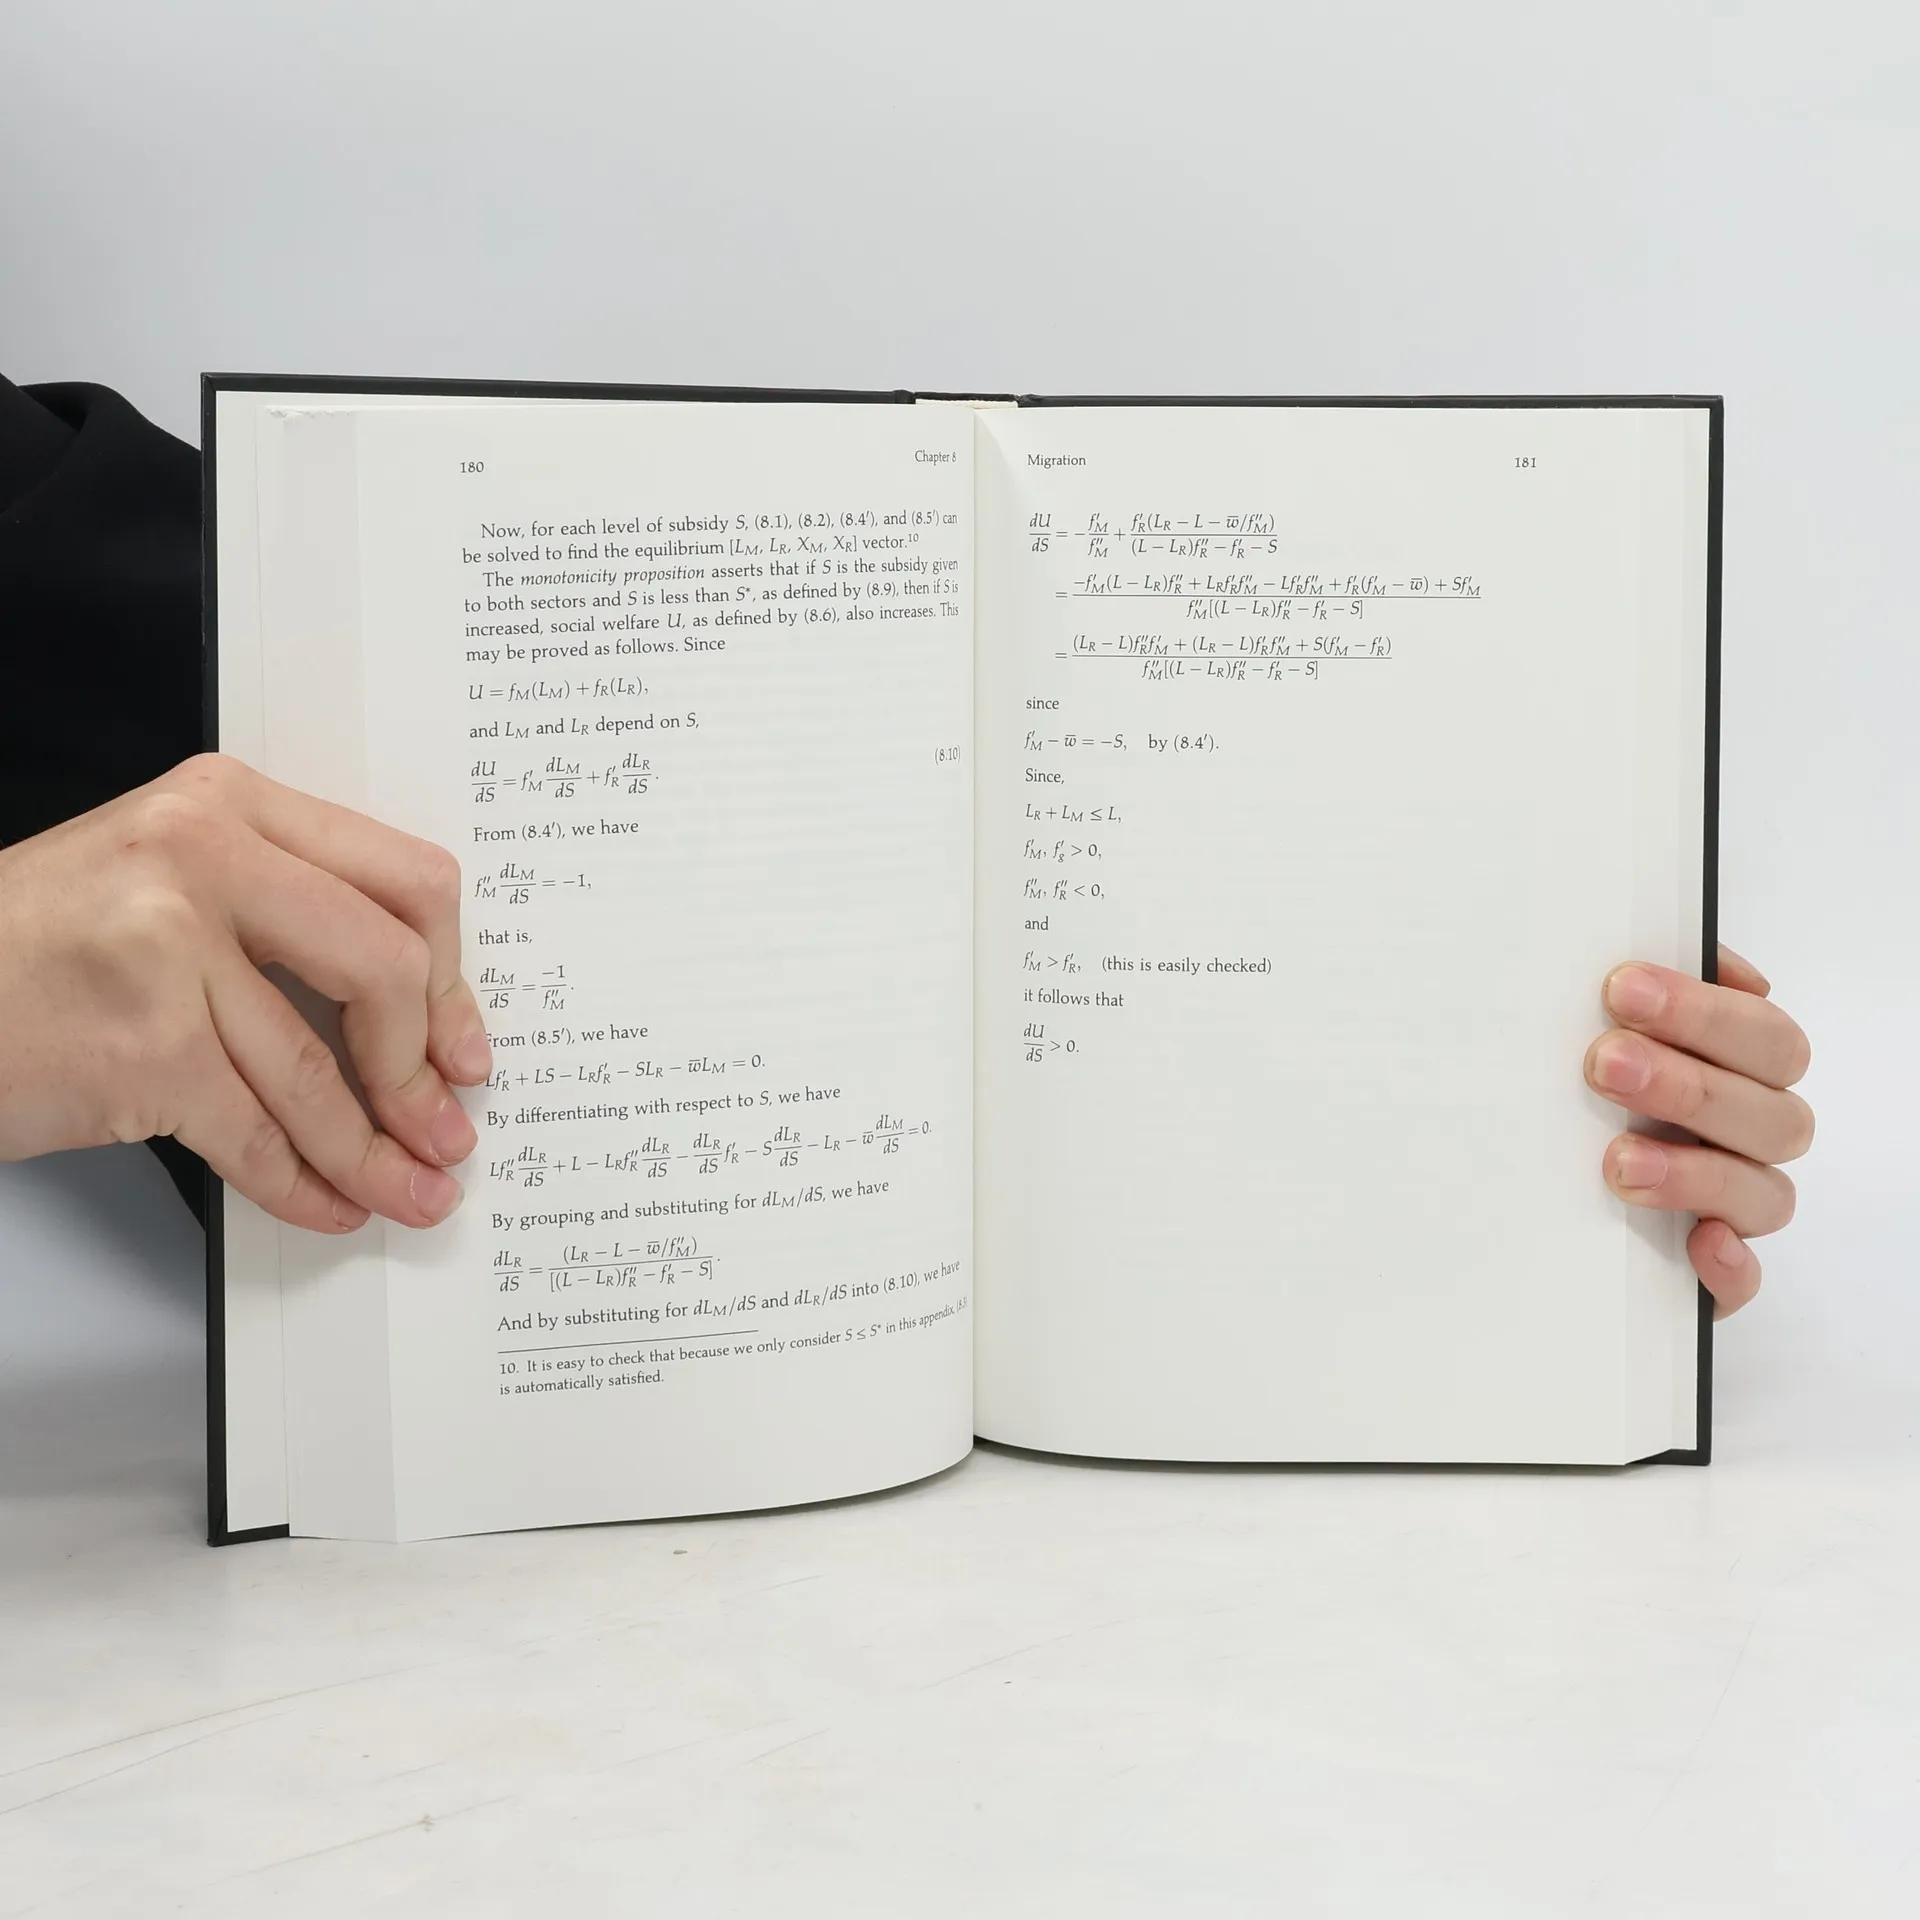 180
Chapter 8
Now, for each level of subsidy S, (8.1), (8.2), (8.4′), and (8.5′) can
be solved to find the equilibrium [L_M, L_R, X_M, X_R] vector.¹⁰
The monotonicity proposition asserts that if S is the subsidy given
to both sectors and S is less than S*, as defined by (8.9), then if S is
increased, social welfare U, as defined by (8.6), also increases. This
may be proved as follows. Since
U = f_M(L_M) + f_R(L_R),
and L_M and L_R depend on S,
dU/dS = f′_M dL_M/dS + f′_R dL_R/dS. (8.10)
From (8.4′), we have
f″_M dL_M/dS = −1,
that is,
dL_M/dS = −1/f″_M.
From (8.5′), we have
Lf′_R + LS − L_Rf′_R − SL_R − w̄L_M = 0.
By differentiating with respect to S, we have
Lf″_R dL_R/dS + L − L_Rf″_R dL_R/dS − dL_R/dS f′_R − S dL_R/dS − L_R − w̄ dL_M/dS = 0.
By grouping and substituting for dL_M/dS, we have
dL_R/dS = (L_R − L − w̄/f″_M)/[(L − L_R)f″_R − f′_R − S].
And by substituting for dL_M/dS and dL_R/dS into (8.10), we have
10. It is easy to check that because we only consider S ≤ S* in this appendix,
is automatically satisfied.
Migration
181
dU/dS = −f′_M/f″_M + f′_R(L_R − L − w̄/f″_M)/((L − L_R)f″_R − f′_R − S)
= (−f′_M(L − L_R)f″_R + L_Rf′_Rf″_M − Lf′_Rf″_M + f′_R(f′_M − w̄) + Sf′_M)/(f″_M[(L − L_R)f″_R − f′_R − S])
= ((L_R − L)f″_Rf′_M + (L_R − L)f′_Rf″_M + S(f′_M − f′_R))/(f″_M[(L − L_R)f″_R − f′_R − S])
since
f′_M − w̄ = −S, by (8.4′).
Since,
L_R + L_M ≤ L,
f′_M, f′_g > 0,
f″_M, f″_R < 0,
and
f′_M > f′_R, (this is easily checked)
it follows that
dU/dS > 0.